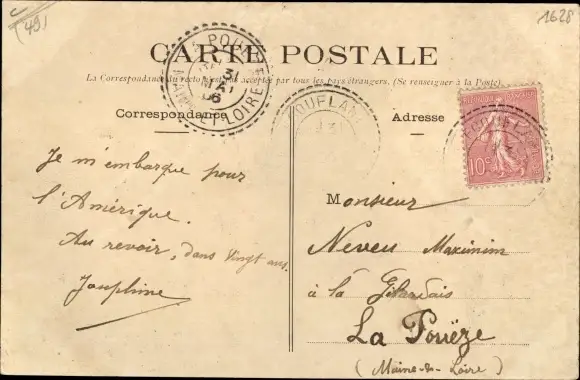 (49)
1628
CARTE POSTALE
La Correspondance au recto n'est pas acceptée par tous les pays étrangers. (Se renseigner à la Poste).
LA POUËZE
31
MAI
06
MAINE-ET-LOIRE
POUFLANC
31
Correspondance
Adresse
10c
Je m'embarque pour
l'Amérique.
Au revoir, dans vingt ans.
Joséphine
Monsieur
Neveu Maximin
à la Gilardais
La Pouëze
(Maine-&-Loire)